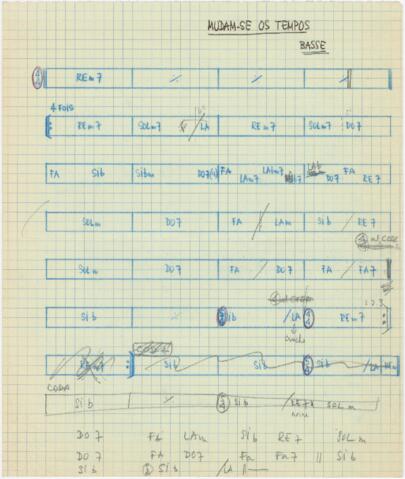 MUDAM-SE OS TEMPOS
BASSE
REm7
4 FOIS
REm7 SOLm7 LA REm7 SOLm7 DO7
FA SIb SIbm DO7 FA LAm7 LAm7 LAb DO7 FA RE7
SOLm DO7 FA LAm SIb RE7
SOLm DO7 FA DO7 FA FA7
SIb SIb LA REm7 1 2 3
SIb SIb SIb LA REm
CODA
SIb SIb RE7 SOLm
DO7 FA LAm SIb RE7 SOLm
DO7 FA DO7 FA FA7
SIb SIb LA